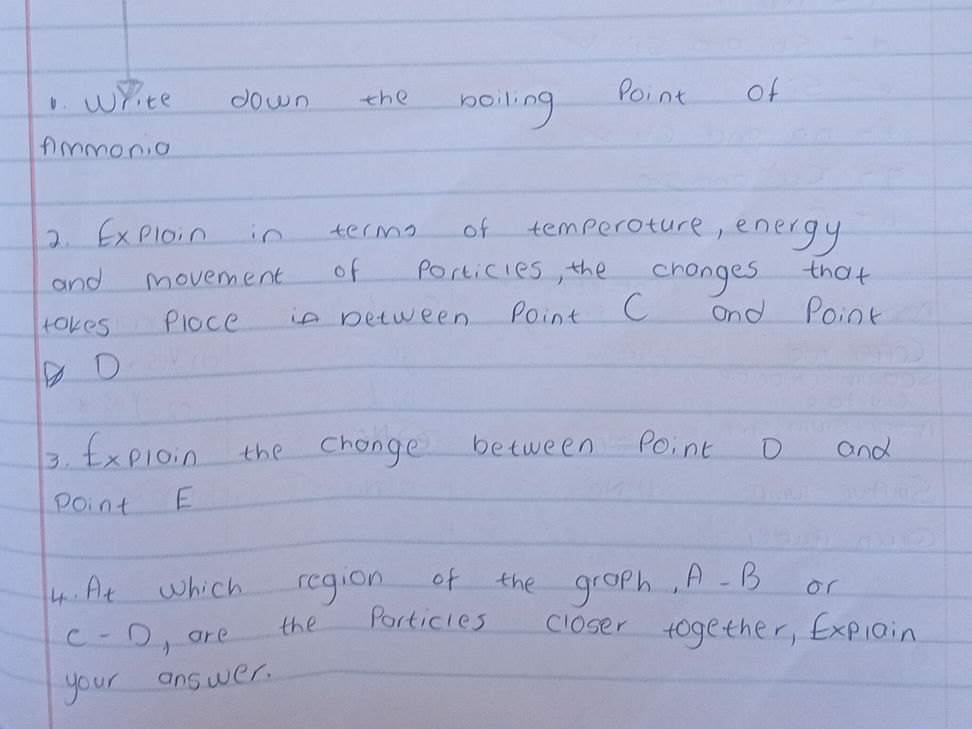 1. Write down the boiling Point of
Ammonia
2. Explain in terms of temperature, energy
and movement of Particles, the changes that
takes Place in between Point C and Point
D
3. Explain the change between Point D and
point E
4. At which region of the graph, A - B or
C - D, are the Particles closer together, Explain
your answer.